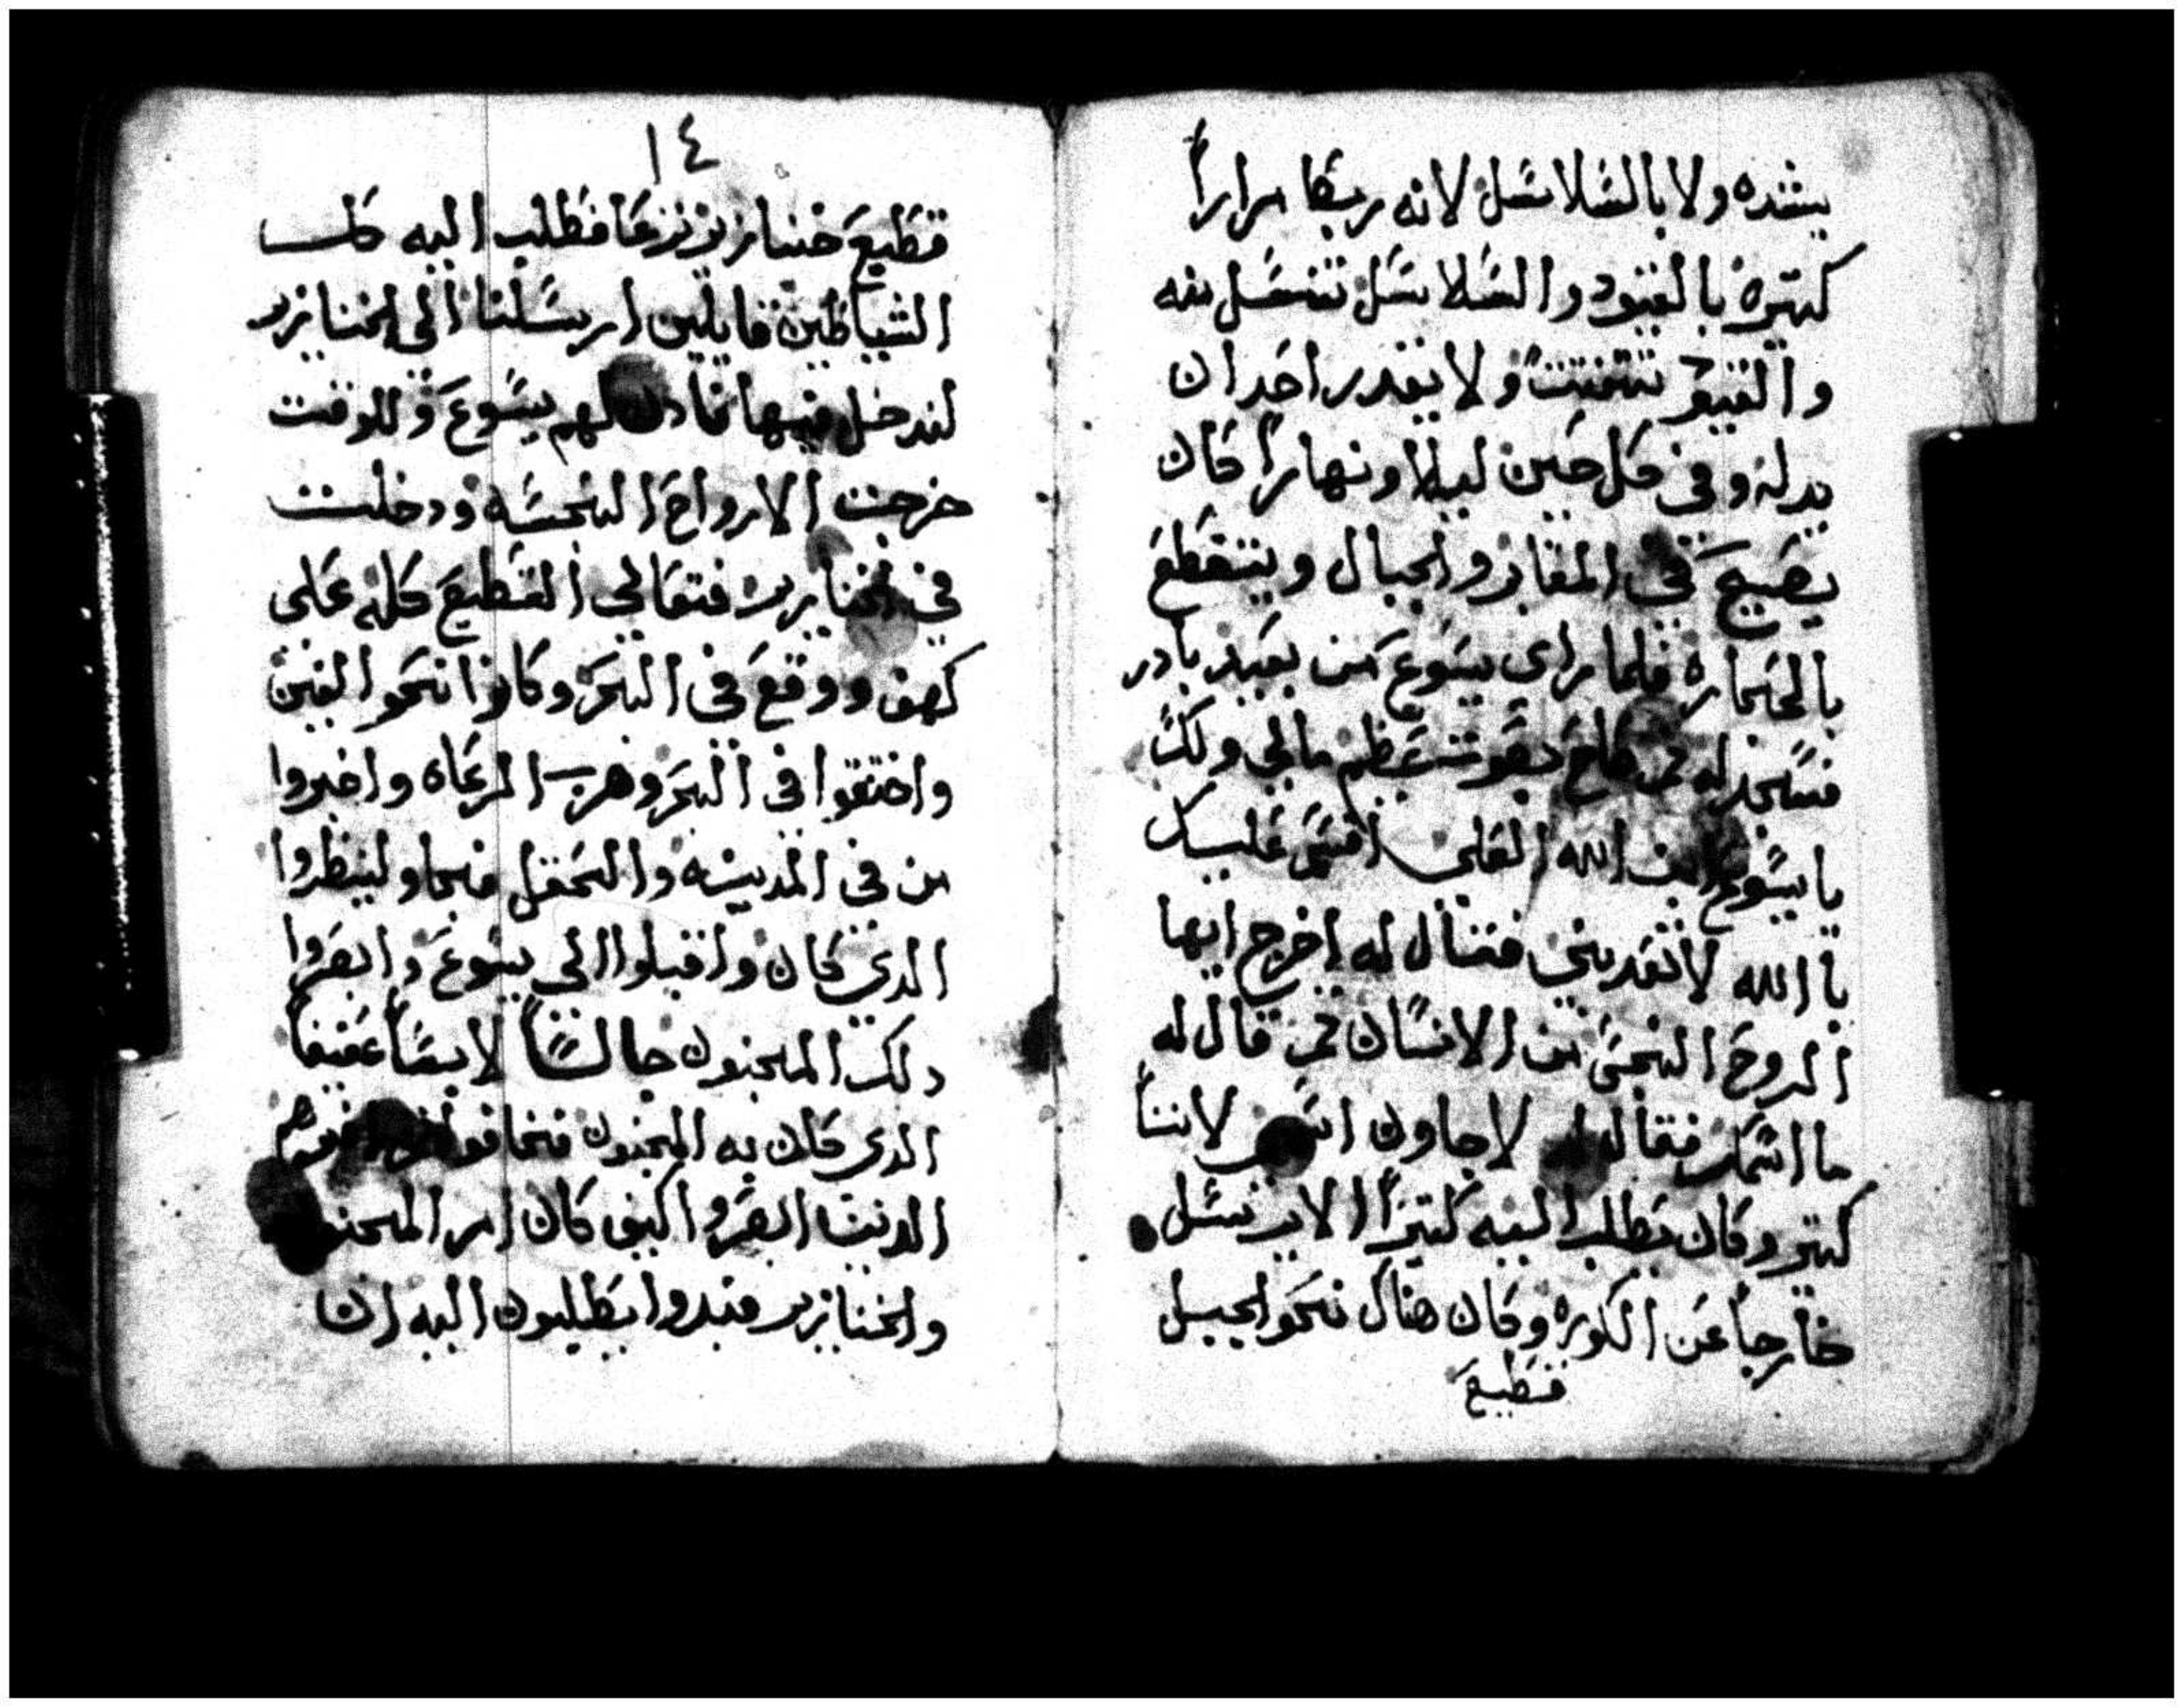 يشده ولا بالسلاسل لانه ربط مرارا
كتيرة بالقيود والسلاسل تنسل منه
والقيود تتفتت ولا يقدر احد ان
يدله وفي كل حين ليلا ونهارا كان
يصيح في المقابر والجبال ويتقطع
بالحجارة فلما راى يسوع من بعيد بادر
فسجد له ثم صاح بصوت عظيم مالي ولك
يا يسوع ابن الله العلي اقسم عليك
بالله لا تعدبني فقال له اخرج ايها
الروح النجس من الانسان ثم قال له
ما اسمك فقال لاجاون لاننا
كتير وكان يطلب اليه كتيرا الا يرسل
خارجا عن الكورة وكان هناك نحو الجبل
قطيع
١٤
قطيع خنازير ترعا فطلب اليه كل
الشياطين قايلين ارسلنا الى الخنازير
لندخل فيها فادن لهم يسوع وللوقت
خرجت الارواح النجسه ودخلت
في الخنازير فتعالى القطيع كله على
كهف ووقع في البحر وكانوا نحو الفين
واختنقوا في البحر وهرب الرعاه واخبروا
من في المدينه والحقل فجاو لينظروا
الدي كان واقبلوا الى يسوع وابصروا
دلك المجنون جالسا لابسا عفيفا
الدي كان به المجنون فخافوا
الدين ابصروا كيف كان امر المجنون
والخنازير فبدوا يطلبون اليه ان